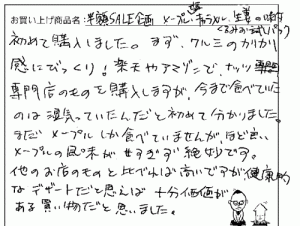 お買い上げ商品名：半額SALE企画 メープル、キャラメル、生姜の味付
くるみお試しパック
初めて購入しました。まず、クルミのカリカリ
感にびっくり！楽天やアマゾンで、ナッツ専門
専門店のものを購入しますが、今まで食べていた
のは湿気っていたんだと初めて分かりました。
まだメープルしか食べていませんが、ほど良い
メープルの風味が甘すぎず絶妙です。
他のお店のものと比べれば高いですが健康的
なデザートだと思えば十分価値が
ある買い物だと思いました。